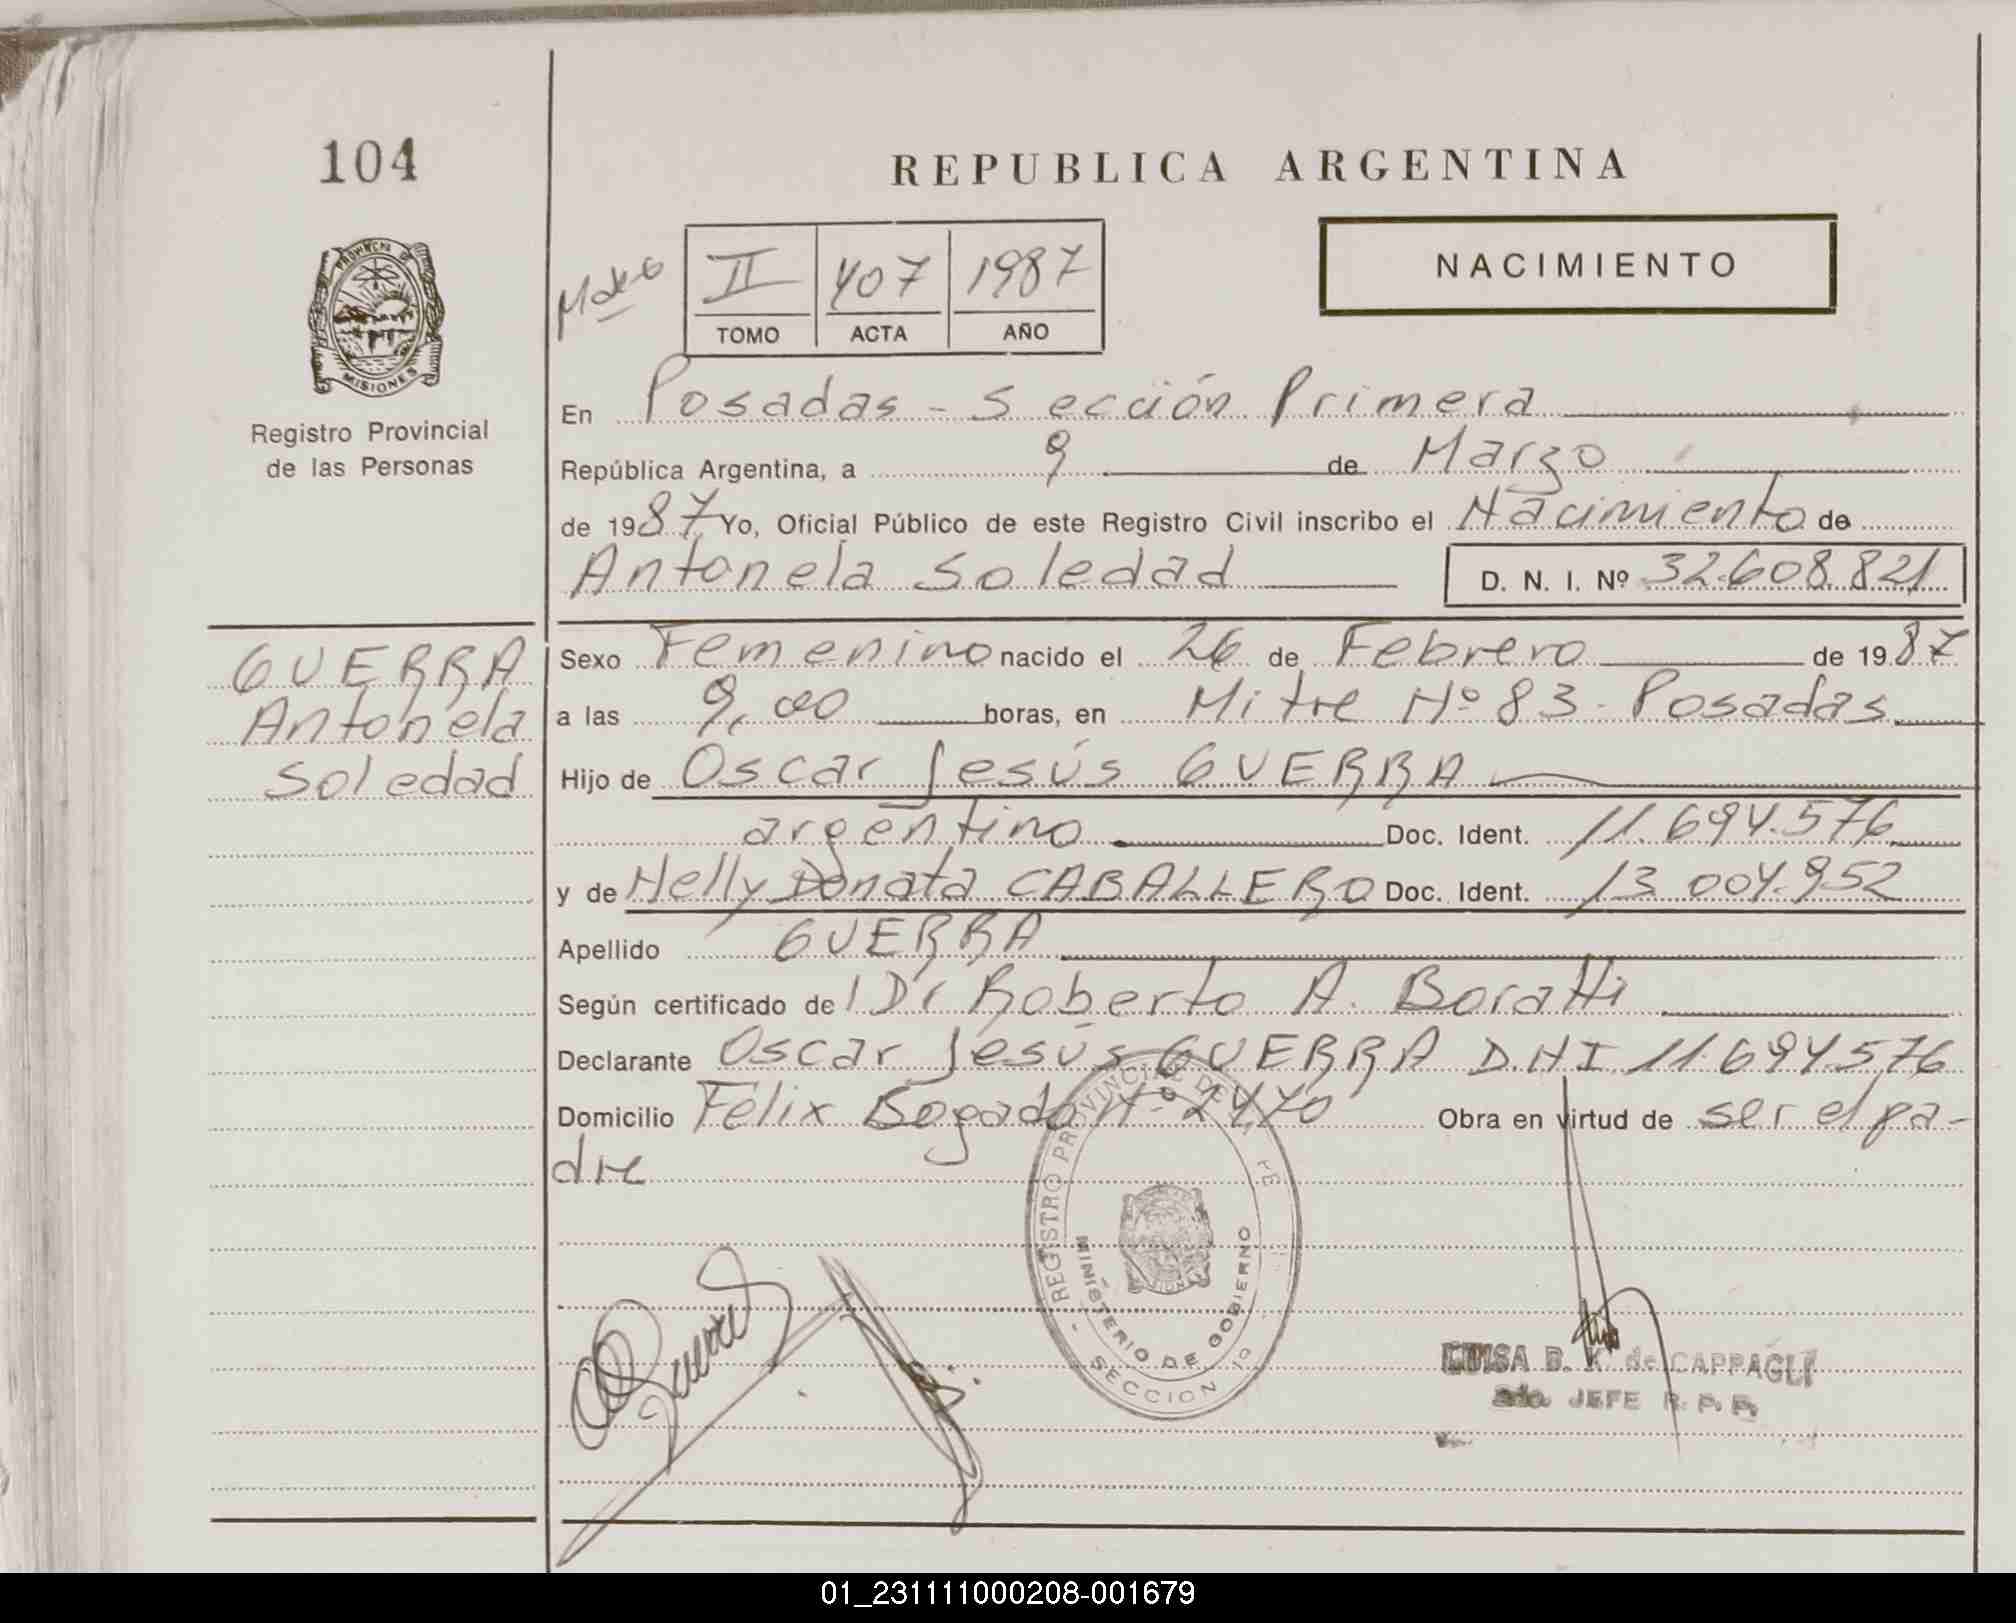 104
REPUBLICA ARGENTINA
PROVINCIA DE
MISIONES
Registro Provincial
de las Personas
II 407 1987
TOMO ACTA AÑO
NACIMIENTO
En Posadas - Sección Primera
República Argentina, a 9 de Marzo
de 1987 Yo, Oficial Público de este Registro Civil inscribo el Nacimiento de
Antonela Soledad D. N. I. Nº 32.608.821
GUERRA
Antonela
Soledad
Sexo Femenino nacido el 26 de Febrero de 1987
a las 9,00 horas, en Mitre Nº 83 - Posadas
Hijo de Oscar Jesús GUERRA
argentino Doc. Ident. 11.694.576
y de Nelly Donata CABALLERO Doc. Ident. 13.004.952
Apellido GUERRA
Según certificado de l Dr Roberto A. Boratti
Declarante Oscar Jesús GUERRA D.N.I. 11.694.576
Domicilio Félix Bogado Nº 2470 Obra en virtud de ser el pa-
dre
REGISTRO PROVINCIAL DE
MINISTERIO DE GOBIERNO
SECCION 1º
LUISA B. K. de CAPPAGLI
2do. JEFE R. P. P.
01_231111000208-001679